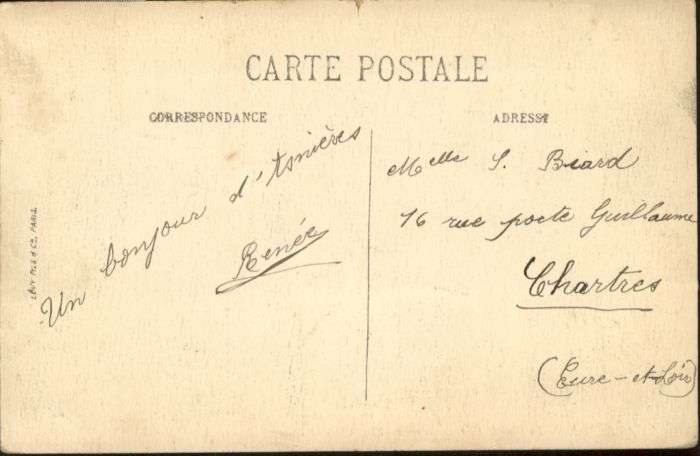 CARTE POSTALE
CORRESPONDANCE
ADRESSE
Un bonjour d'Asnières
Renée
Melle S. Biard
16 rue porte Guillaume
Chartres
(Eure-et-Loir)
LÉVY FILS & Cie, PARIS.